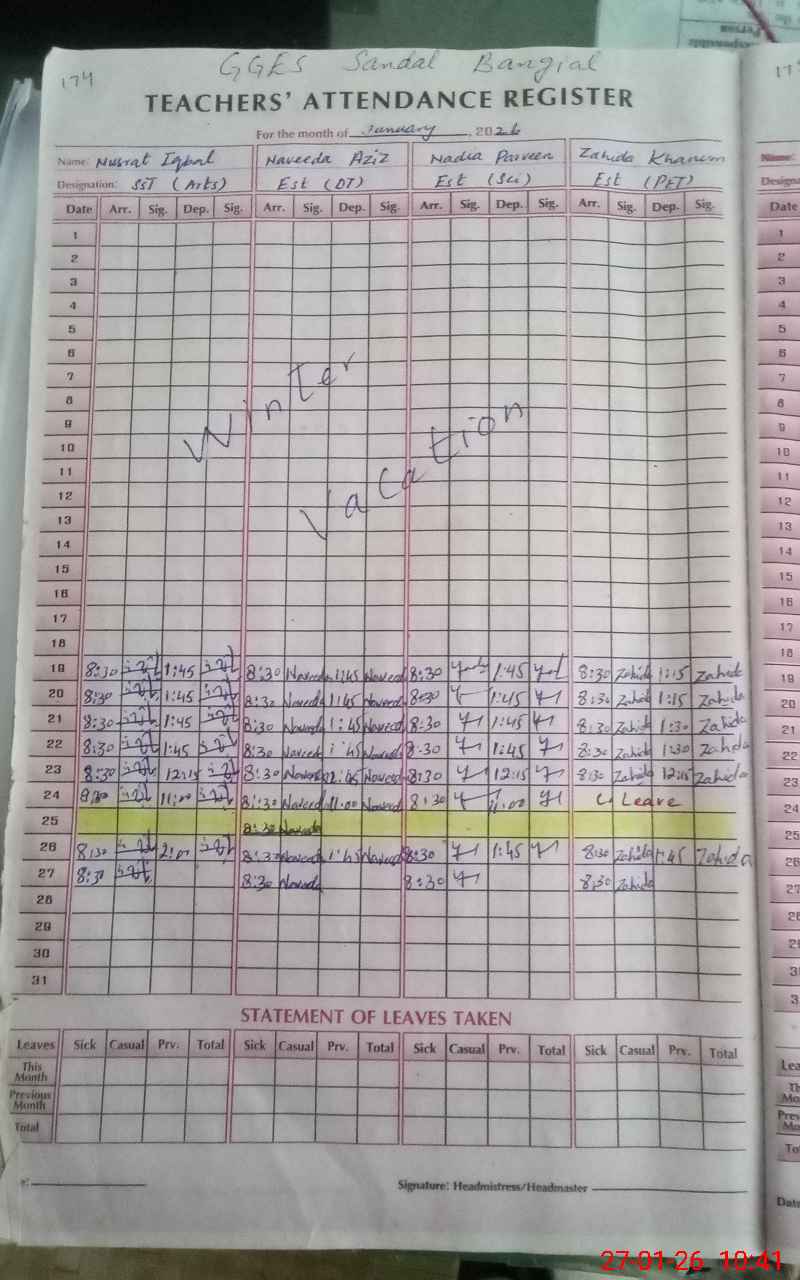 174
GGES Sandal Bangial
TEACHERS' ATTENDANCE REGISTER
For the month of January, 2026
Name: Nusrat Iqbal Naveeda Aziz Nadia Parveen Zahida Khanum
Designation: SST (Arts) Est (DT) Est (Sci) Est (PET)
Date Arr. Sig. Dep. Sig. Arr. Sig. Dep. Sig. Arr. Sig. Dep. Sig. Arr. Sig. Dep. Sig.
1
2
3
4
5
6
7
8
9
10
11
12
13
14
15
16
17
Winter
Vacation
18
19 8:30 1:45 8:30 Naveed 1:45 Naveed 8:30 1:45 8:30 Zahida 1:15 Zahida
20 8:30 1:45 8:30 Naveed 1:45 Naveed 8:30 1:45 8:30 Zahida 1:15 Zahida
21 8:30 1:45 8:30 Naveed 1:45 Naveed 8:30 1:45 8:30 Zahida 1:30 Zahida
22 8:30 1:45 8:30 Naveed 1:45 Naveed 8:30 1:45 8:30 Zahida 1:30 Zahida
23 8:30 12:15 8:30 Naveed Naveed 8:30 12:15 8:30 Zahida 12:15 Zahida
24 8:30 11:00 8:30 Naveed 11:00 Naveed 8:30 11:00 C. Leave
25 8:30 Naveed
26 8:30 2:00 8:30 Naveed 1:45 Naveed 8:30 1:45 8:30 Zahida 1:45 Zahida
27 8:30 8:30 Naveed 8:30 8:30 Zahida
28
29
30
31
STATEMENT OF LEAVES TAKEN
Leaves Sick Casual Prv. Total Sick Casual Prv. Total Sick Casual Prv. Total Sick Casual Prv. Total
This Month
Previous Month
Total
Signature: Headmistress/Headmaster
27-01-26 10:41